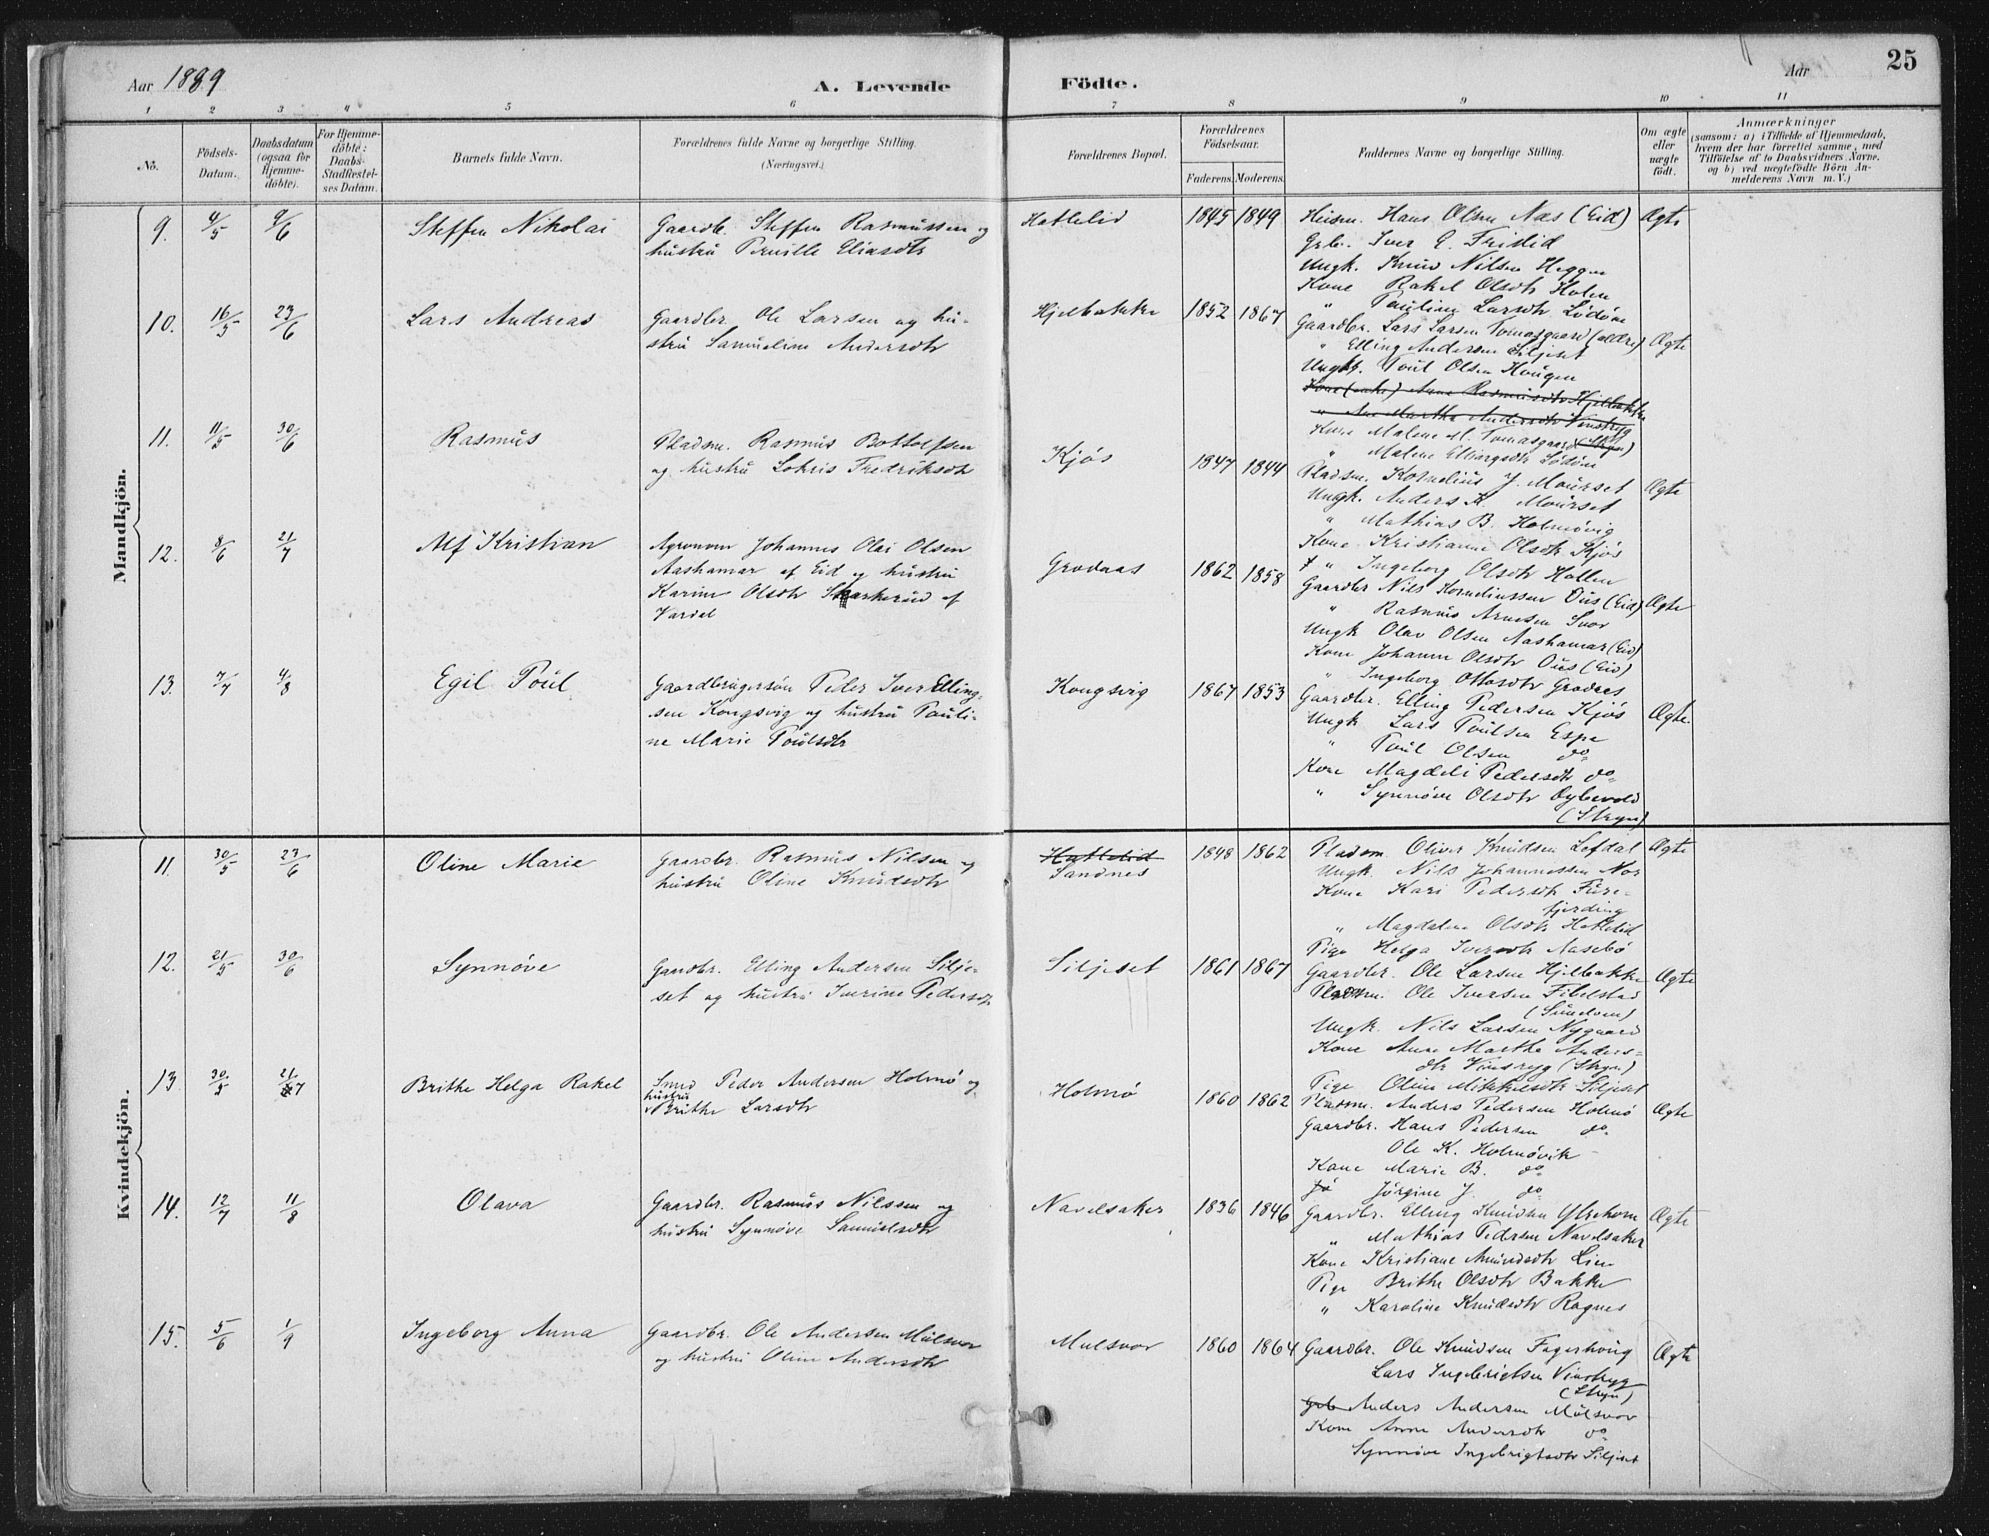 Aar 1889
A. Levende Födte.
Aar
25
1 2 3 4 5 6 7 8 9 10 11
No.
Födsels-Datum.
Daabsdatum (ogsaa for Hjemme-döbte).
For Hjemme-döbte: Daabs-Stadfæstel-ses Datum.
Barnets fulde Navn.
Forældrenes fulde Navne og borgerlige Stilling. (Næringsvei.)
Forældrenes Bopæl.
Forældrenes Födselsaar.
Faderens. Moderens.
Faddernes Navne og borgerlige Stilling.
Om ægte eller uægte födt.
Anmærkninger
(saasom: a) i Tilfælde af Hjemmedaab,
hvem der har forrettet samme, med
Tilföielse af to Daabsvidners Navne,
og b) ved uægtefödte Börn An-
melderens Navn m. V.)
Mandkjön.
9. 4/5 9/6 Steffen Nikolai
Gaardb. Steffen Rasmussen og
hustru Pernille Eliasdtr
Hatlelid 1845 1849
Husm. Hans Olsen Næs (Eid)
Grbr. Iver E. Fristid
Ungk. Knud Nilsen Heggen
Kone Rakel Olsdtr Holen
" Pauline Larsdtr Lödöen
Ægte
10. 16/5 23/6 Lars Andreas
Gaardbr. Ole Larsen og hu-
stru Samueline Andersdtr
Hjelbakke 1852 1867
Gaardbr. Lars Larsen Tomasgaard (ældre)
" Elling Andersen Siljeset
Ungk. Poul Olsen Haugen
Kone (enke) Anne Rasmusdtr Hjelbakke
" Ane Marthe Andersdtr Vinsryg
Kone Malene M. Tomasgaard (Stryn)
" Malene Ellingsdtr Lödöen
Ægte
11. 11/5 30/6 Rasmus
Pladsm. Rasmus Bottolfsen
og hustru Lovis Fredriksdtr
Kjös 1847 1844
Pladsm. Kornelius J. Maurset
Ungk. Anders K. Maurset
" Mathias B. Holmövig
Kone Kristianne Olsdtr Kjös
" Ingeborg Olsdtr Hollen
Ægte
12. 8/6 21/7 Alf Kristian
Agronom Johannes Olai Olsen
Aashamar af Eid og hustru
Karine Olsdtr Skarkerud af
Vardal
Grodaas 1862 1858
Gaardbr Nils Korneliussen Ous (Eid)
" Rasmus Arnesen Svor
Ungk Olav Olsen Aashamar (Eid)
Kone Johanne Olsdtr Ous (Eid)
" Ingeborg Ottosdtr Grodaas
Ægte
13. 7/7 4/8 Egil Poul
Gaardbrugersön Peder Iver Elling-
sen Kongsvig og hustru Pauli-
ne Marie Poulsdtr
Kongsvig 1867 1853
Gaardbr. Elling Pedersen Kjös
Ungk Lars Poulsen Espe
" Poul Olsen do
Kone Magdeli Pedersdtr do
" Synnöve Olsdtr Bybevold
(Stryn)
Ægte
Kvindekjön.
11. 30/5 23/6 Oline Marie
Gaardbr. Rasmus Nilsen og
hustru Oline Knudsdtr
Hatlelid
Sandnes 1848 1862
Pladsm. Oliver Knudsen Lefdal
Ungk. Nils Johannessen Nor
Kone Kari Pedersdtr Fure-
fjerding
" Magdalene Olsdtr Hatlelid
Pige Helga Iversdtr Nasebö
Ægte
12. 21/5 30/6 Synnöve
Gaardbr. Elling Andersen Silje-
set og hustru Iverine Pedersdtr
Siljeset 1861 1867
Gaardbr. Ole Larsen Hjelbakke
Pladsm. Ole Iversen Fibelstad
(Sunelven)
Ungk. Nils Larsen Nygaard
Kone Anne Marthe Anders-
dtr Vinsryg (Stryn)
Pige Oline Mikkelsdtr Siljeset
Ægte
13. 30/5 21/7 Brithe Helga Rakel
Smed Peder Andersen Holmö og
hustru
Brithe Larsdtr
Holmö 1860 1862
Pladsm. Anders Pedersen Holmö
Gaardbr. Hans Pedersen do
Ole K. Holmövik
Kone Marie B. do
Jörgine J. do
Ægte
14. 12/7 11/8 Olava
Gaardbr. Rasmus Nilssen og
hustru Synnöve Samuelsdtr
Navelsaker 1836 1846
Gaardbr. Elling Knudsen Ytrehorn
" Mathias Pedersen Navelsaker
Kone Kristiane Amundsdtr Lien
Pige Brithe Olsdtr Bakke
" Karoline Knudsdtr Ragnes
Ægte
15. 5/6 1/9 Ingeborg Anna
Gaardbr. Ole Andersen Mulsvor
og hustru Oline Andersdtr
Mulsvor 1860 1864
Gaardbr. Ole Knudsen Fagerhaug
Lars Ingebrigtsen Vinsryg
(Stryn)
Grb Anders Andersen Mulsvor
Kone Anne Andersdtr do
Synnöve Ingebrigtsdtr Siljeset
Ægte